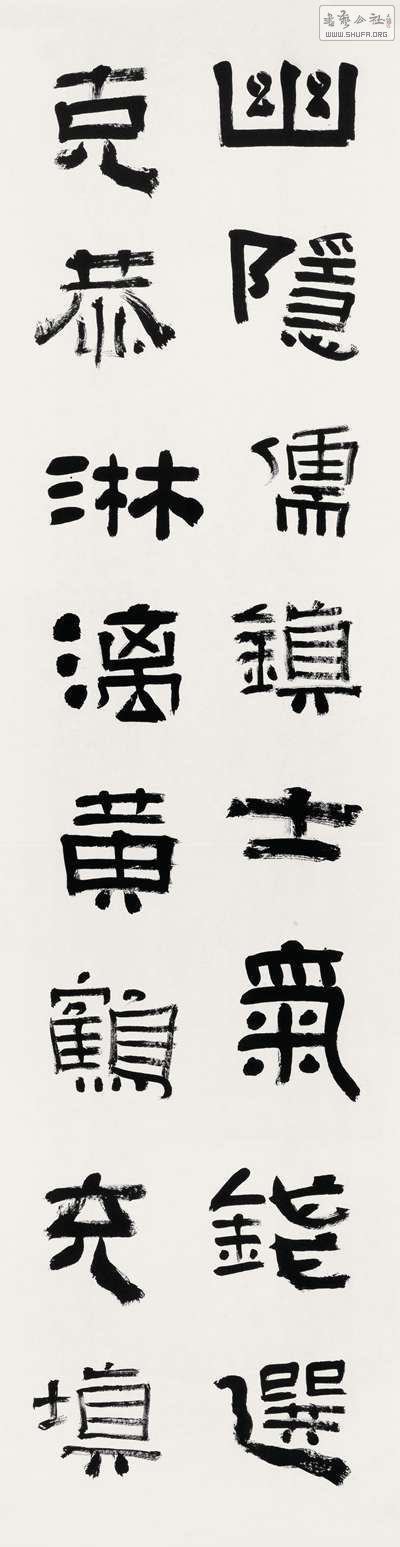 幽隱儒鎮士氣錢選
克恭淋漓黄鶴充填
書藝公社
WWW.SHUFA.ORG